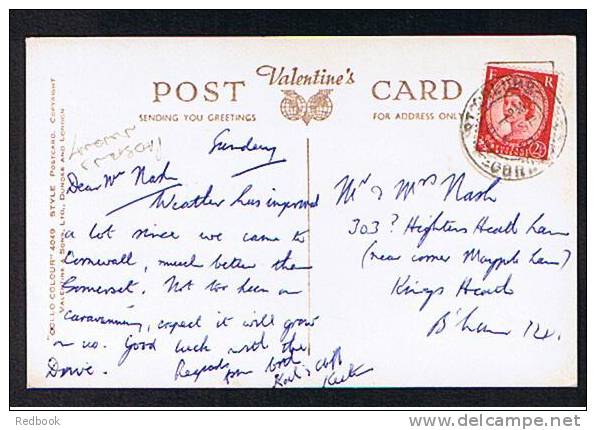 POST Valentine's CARD
SENDING YOU GREETINGS
FOR ADDRESS ONLY
"COLLO COLOUR" 4049 STYLE POSTCARD, COPYRIGHT
VALENTINE & SONS, LTD., DUNDEE AND LONDON
Sunday
Dear Mr Nash
Weather has improved
a lot since we came to
Cornwall, much better than
Somerset. Not too keen on
caravanning, expect it will grow
on us. Good luck with the
Drive. Regards from both
Mr & Mrs Nash
303? Highters Heath Lane
(near corner Maypole Lane)
Kings Heath
B'ham 14.
Redbook
www.delcampe.net